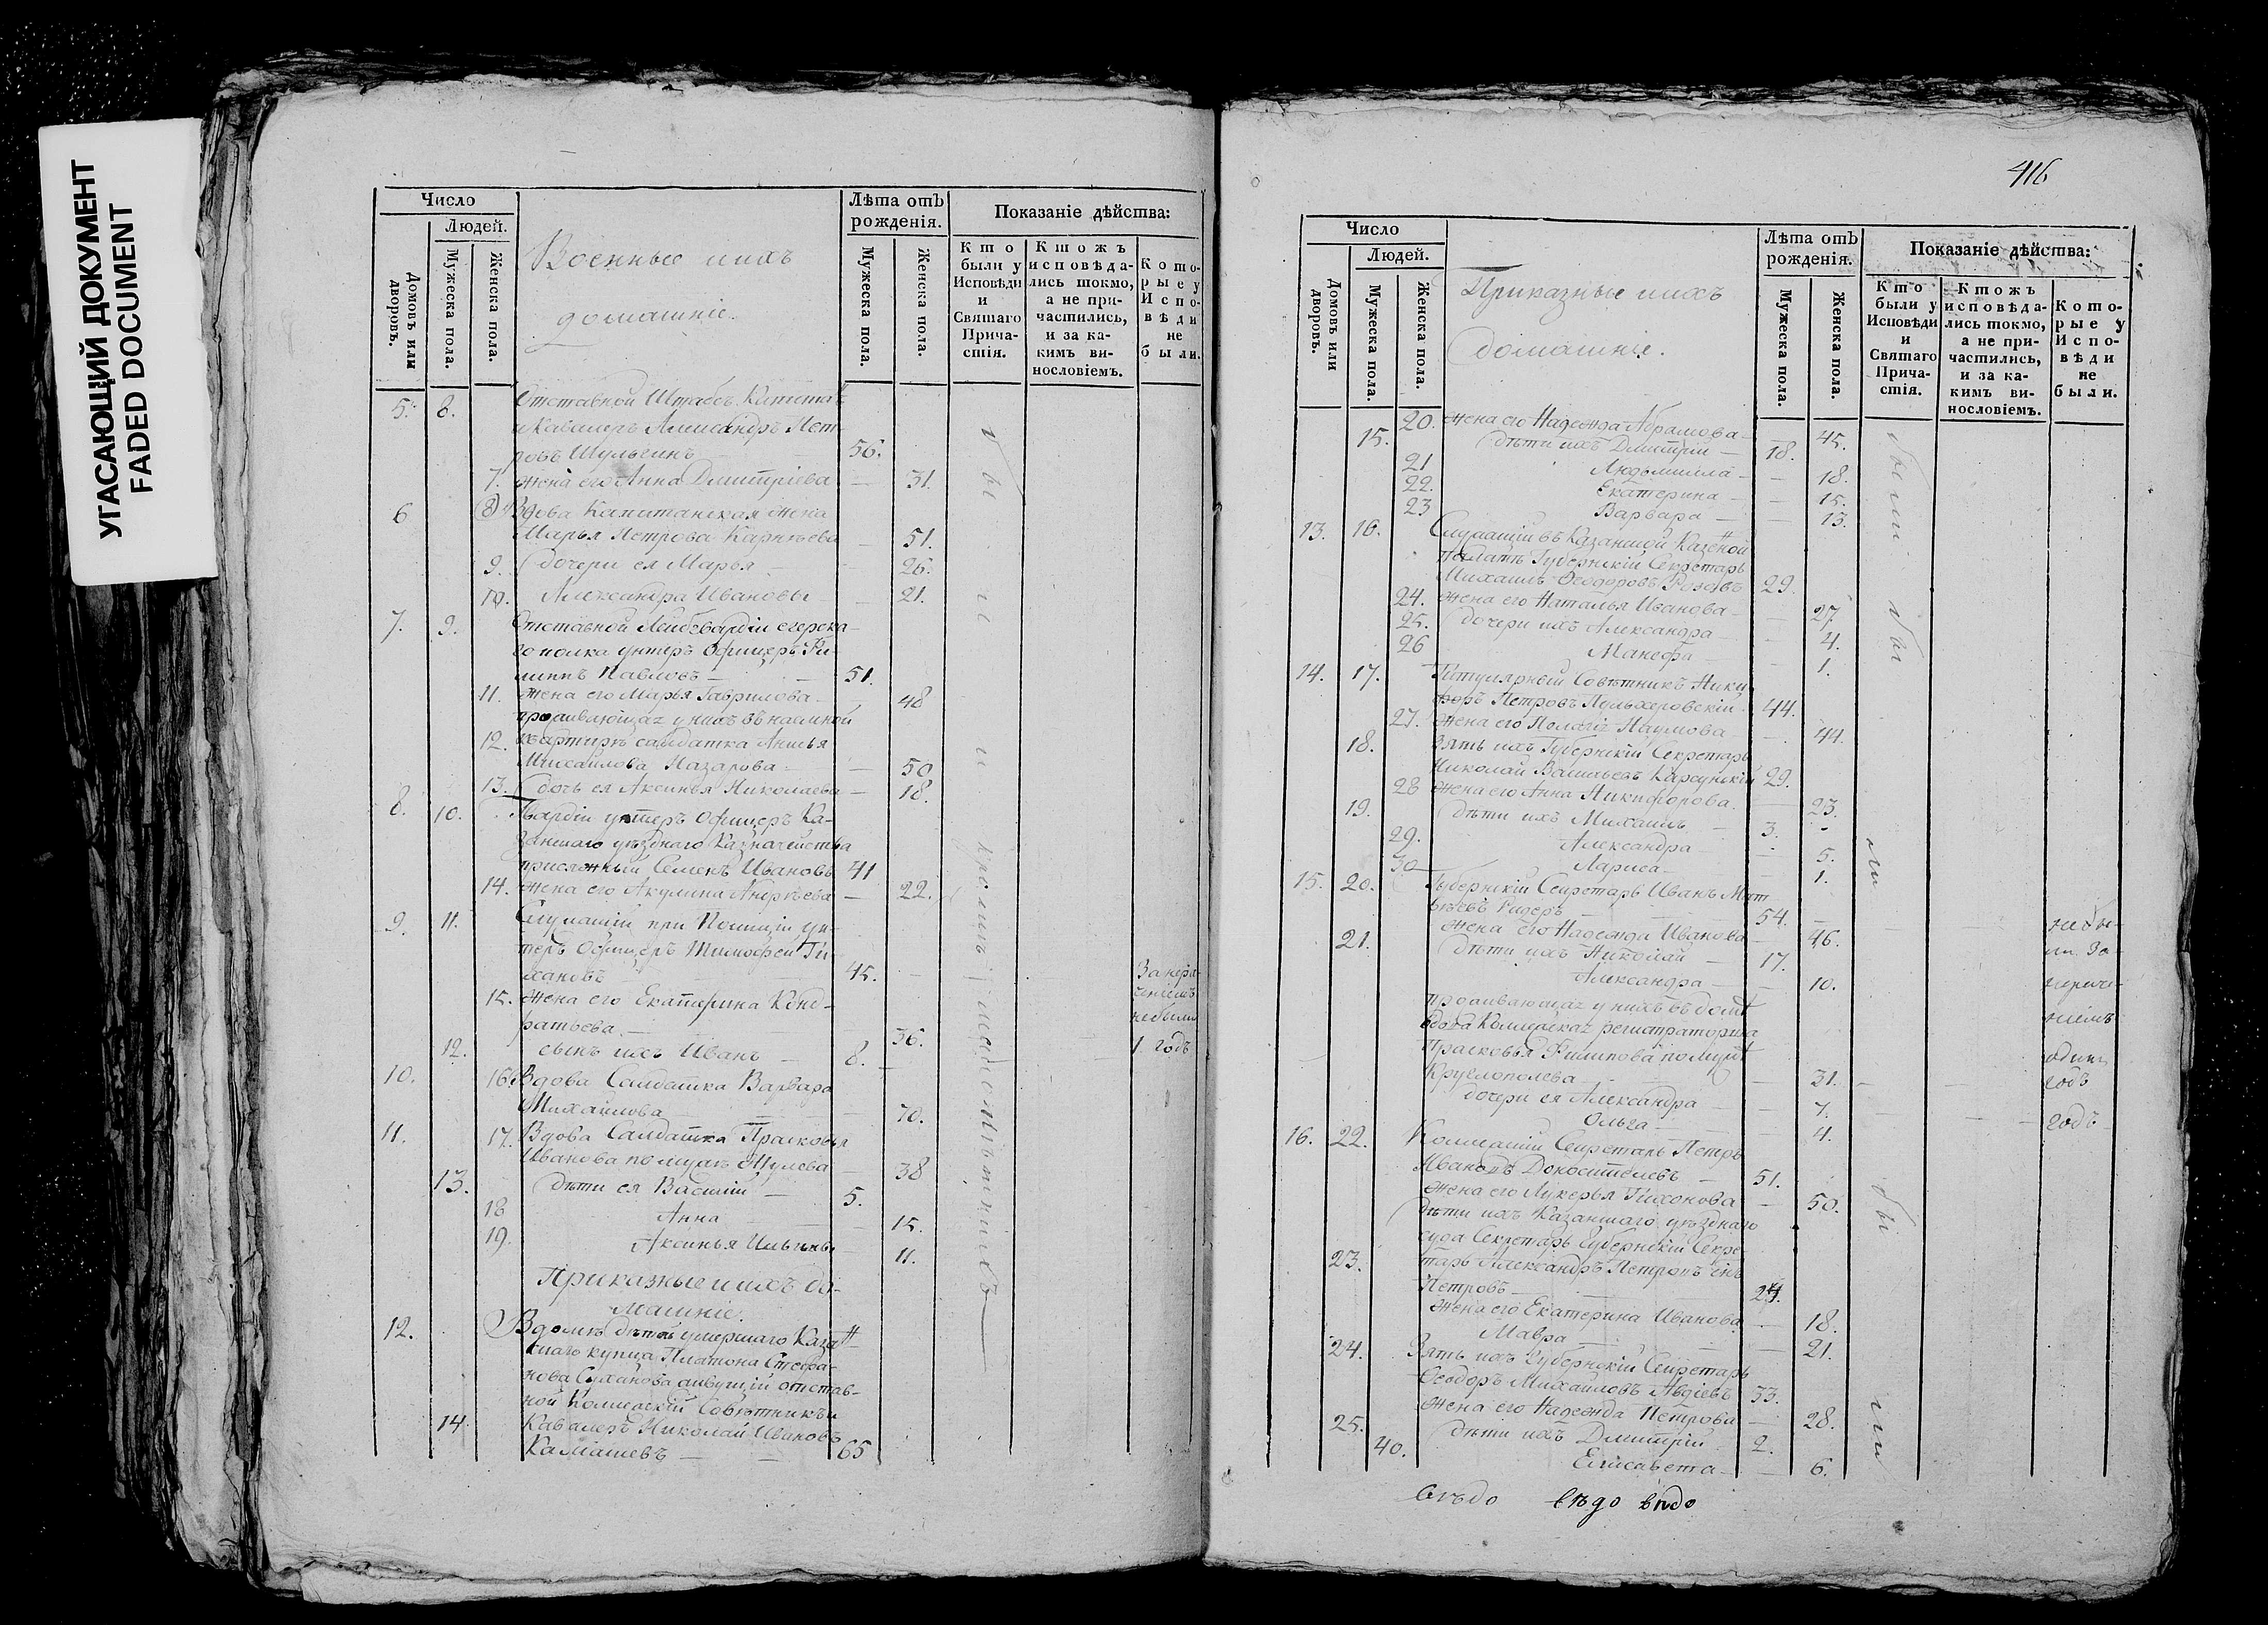 УГАСАЮЩИЙ ДОКУМЕНТ
FADED DOCUMENT
Число
Людей.
Домовъ или дворовъ.
Мужеска пола.
Женска пола.
Военные и ихъ
домашніе.
Лѣта отъ рожденія.
Мужеска пола.
Женска пола.
Показаніе дѣйства:
Кто были у Исповѣди и Святаго Причастія.
Ктожъ исповѣдались токмо, а не причастились, и за какимъ винословіемъ.
Которые у Исповѣди не были.
5. 8. Отставной Штабсъ Капитанъ
и Кавалеръ Александръ Пет-
ровъ Шульгинъ 56.
7. жена его Анна Дмитріева 31.
6 8 Вдова Капитанская жена
Марья Петрова Карнѣева 51.
9. дочери ея Марья 26.
10. Александра Ивановы 21.
7. 9. Отставной Лейбгвардіи егерска-
го полка унтеръ Офицеръ Фи-
липпъ Павловъ 51.
11. жена его Марья Гаврилова 48
проживающая у нихъ въ наемной
12. квартирѣ салдатка Анисья
Михайлова Назарова 50
13. дочь ея Аксинья Николаева 18.
8. 10. Гвардіи унтеръ Офицеръ Ка-
занскаго уѣзднаго Казначейства
присяжный Семенъ Ивановъ 41
14. жена его Акулина Андрѣева 22.
9. 11. Служащій при Полиціи ун-
теръ Офицеръ Тимофей Ти-
хановъ 45.
15. жена его Екатерина Конд-
ратьева 36.
12. сынъ ихъ Иванъ 8.
За нера-
ченіемъ
небыли
1 годъ
10. 16. Вдова Салдатка Варвара
Михайлова 70.
11. 17. Вдова Салдатка Прасковья
Иванова по мужѣ Жулева 38
13. дѣти ея Василій 5.
18 Анна 15.
19. Аксинья Ильины 11.
Приказные и ихъ до-
машніе.
12. Вдомѣ дѣтей умершаго Казан-
скаго купца Платона Стефа-
нова Суханова живущій отстав-
ной Коллежскій Совѣтникъ и
14. Кавалеръ Николай Ивановъ
Калашевъ 65
были кромѣ малолѣтнихъ
416
Число
Людей.
Домовъ или дворовъ.
Мужеска пола.
Женска пола.
Приказные и ихъ
домашніе.
Лѣта отъ рожденія.
Мужеска пола.
Женска пола.
Показаніе дѣйства:
Кто были у Исповѣди и Святаго Причастія.
Ктожъ исповѣдались токмо, а не причастились, и за какимъ винословіемъ.
Которые у Исповѣди не были.
20. жена его Надежда Абрамова 45.
15. дѣти ихъ Дмитрій 18.
21 Людьмилла 18.
22. Екатерина 15.
23 Варвара 13.
13. 16. Служащій въ Казанской Казенной
палатѣ Губернскій Секретарь
Михаилъ Ѳеодоровъ 29.
24. жена его Наталья Иванова 27.
25. дочери ихъ Александра 4.
26 1.
14. 17. Титулярный Совѣтникъ Ники-
форъ Петровъ Пульхеровскій 44.
27. жена его Пелагія Наумова 44.
18. Зять ихъ Губернскій Секретарь
Николай Васильевъ Карсунскій 29.
28 жена его Анна Никифорова 23.
19. дѣти ихъ Михаилъ 3.
29. Александра 5.
30 Лариса 1.
15. 20. Губернскій Секретарь Иванъ Мат-
вѣевъ Ридеръ 54.
жена его Надежда Иванова 46.
21. дѣти ихъ Николай 17.
Александра 10.
проживающая у нихъ въ домѣ
вдова Коллежская регистраторша
Прасковья Филипова по мужѣ
Круглополева 31.
дочери ея Александра 7.
Ольга 4.
небы-
ли за
нераче-
ніемъ
одинъ
годъ
годъ
16. 22. Коллежскій Секретарь Петръ
Ивановъ 51.
жена его Лукерья Тихонова 50.
дѣти ихъ Казанскаго уѣзднаго
суда Секретарь Губернскій Секре-
23. тарь Александръ
Петровъ 24.
жена его Екатерина Иванова 18.
Мавра 21.
24. Зять ихъ Губернскій Секретарь
Ѳеодоръ Михайловъ Авдіевъ 33.
жена его Надежда Петрова 28.
25. дѣти ихъ Дмитрій 2.
40. Елисавета 6.
были бы ли бы ли